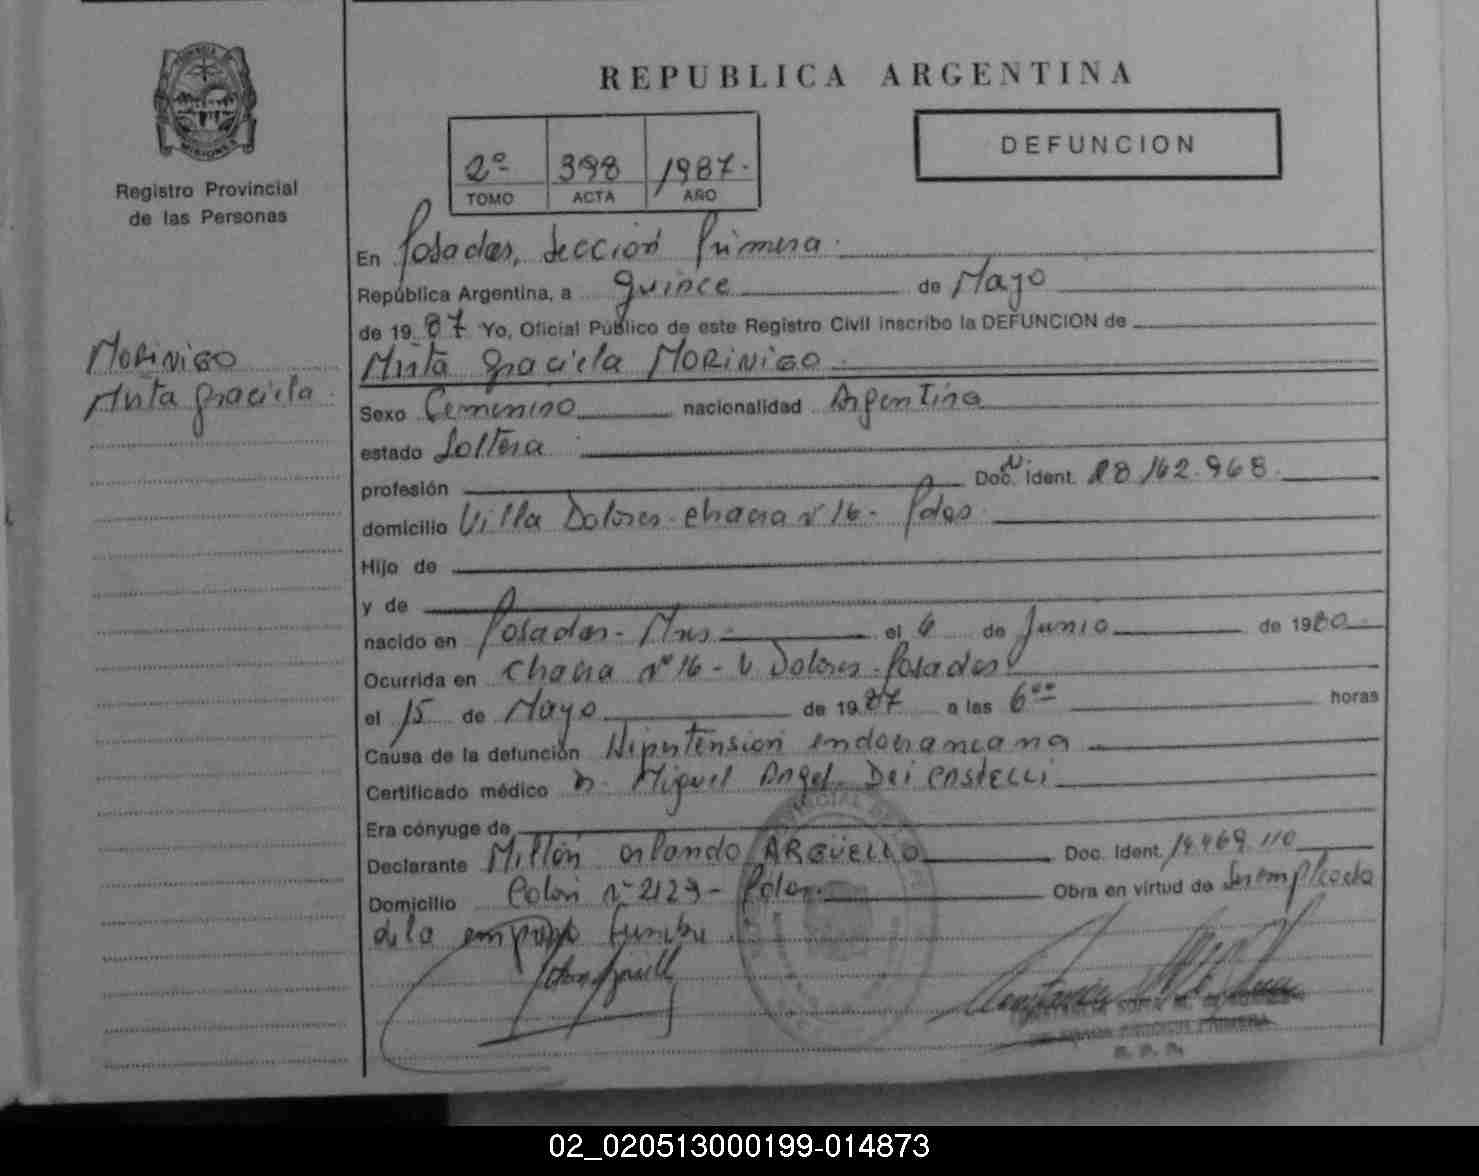 REPUBLICA ARGENTINA
2º 398 1987.
TOMO ACTA AÑO
DEFUNCION
PROVINCIA
MISIONES
Registro Provincial
de las Personas
En Posadas, Sección Primera.
República Argentina, a quince de Mayo
de 1987 Yo, Oficial Público de este Registro Civil inscribo la DEFUNCION de
Mirta Graciela MORINIGO.
MORINIGO
Mirta Graciela.
Sexo Femenino nacionalidad Argentina
estado Soltera
profesión Doc. Ident. 28.162.968.
domicilio Villa Dolores chacra nº 16 - Pdas.
Hijo de
y de
nacido en Posadas - Mnes. el 6 de Junio de 1980.
Ocurrida en Chacra nº 16 - V. Dolores - Posadas
el 15 de Mayo de 1987 a las 6ºº horas
Causa de la defunción Hipertensión endocraneana
Certificado médico Dr. Miguel Angel Dei CASTELLI
Era cónyuge de
Declarante Miltón Orlando ARGÜELLO Doc. Ident. 14.469.110
Domicilio Colón nº 2129 - Pdas. Obra en virtud de Ser empleado
de la empresa fúnebre
02_020513000199-014873